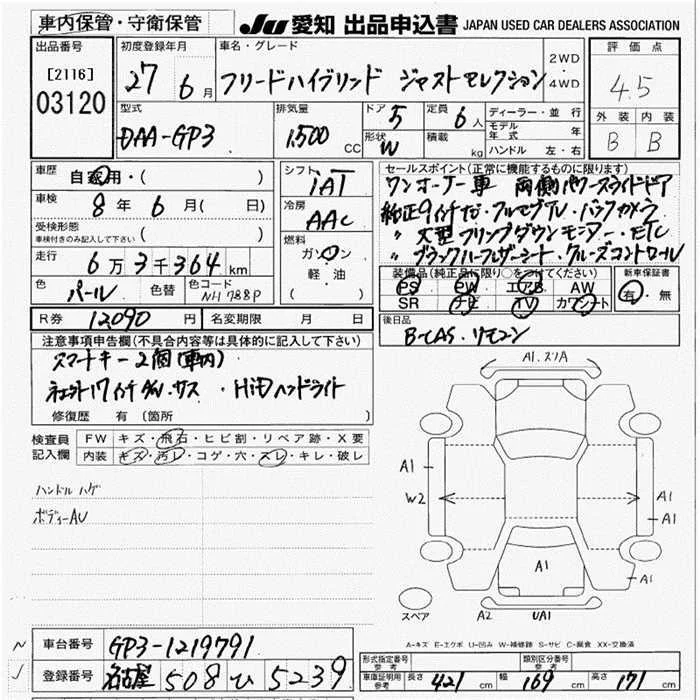 車内保管・守衛保管 JU 愛知 出品申込書 JAPAN USED CAR DEALERS ASSOCIATION
出品番号 初度登録年月 車名・グレード 2WD・4WD 評価点
[2116] 03120 27 6月 フリードハイブリッド ジャストセレクション 4.5
型式 排気量 ドア 定員 ディーラー・並行 外装 内装
DAA-GP3 1,500 CC 5 6人 モデル年式 年 B B
形状 W 積載 kg ハンドル 左・右
車歴 自家用・( ) シフト セールスポイント(正常に機能するものに限ります)
車検 8年 6月( 日) IAT ワンオーナー車 両側パワースライドドア
受検形態 冷房 純正9インチナビ・フルセグTV・バックカメラ
車検付きのみ記入して下さい ( ) AAC 〃 大型フリップダウンモニター・ETC
走行 6万3千364km 燃料 〃 ブラックハーフレザーシート・クルーズコントロール
ガソリン 装備品(純正品に限り○をつけてください) 新車保証書
色 パール 色替 色コード NH788P 軽油 PS PW エアB AW 有・無
( ) SR ナビ TV カワシート
R券 12,090円 名変期限 月 日 後日品
注意事項申告欄(不具合内容等は具体的に記入して下さい) B-CAS・リモコン
スマートキー2個(車内)
17インチAW・サス ・HiDヘッドライト
修復歴 有 (箇所 )
検査員 FW キズ・飛石・ヒビ割・リペア跡・X要
記入欄 内装 キズ・汚レ・コゲ・穴・スレ・キレ・破レ
ハンドル ハゲ
ボディーAU
A1.スリA
A1
W2 A1
A1
A1 A1
スペア A2 UA1
A-キズ E-エクボ U-凹み W-補修跡 S-サビ C-腐食 XX-交換済
車台番号 GP3-1219791
登録番号 名古屋 508 ひ 5239
形式指定番号 参考 類別区分番号 参考
車庫証明用 参考 長さ 421cm 幅 169cm 高さ 171cm